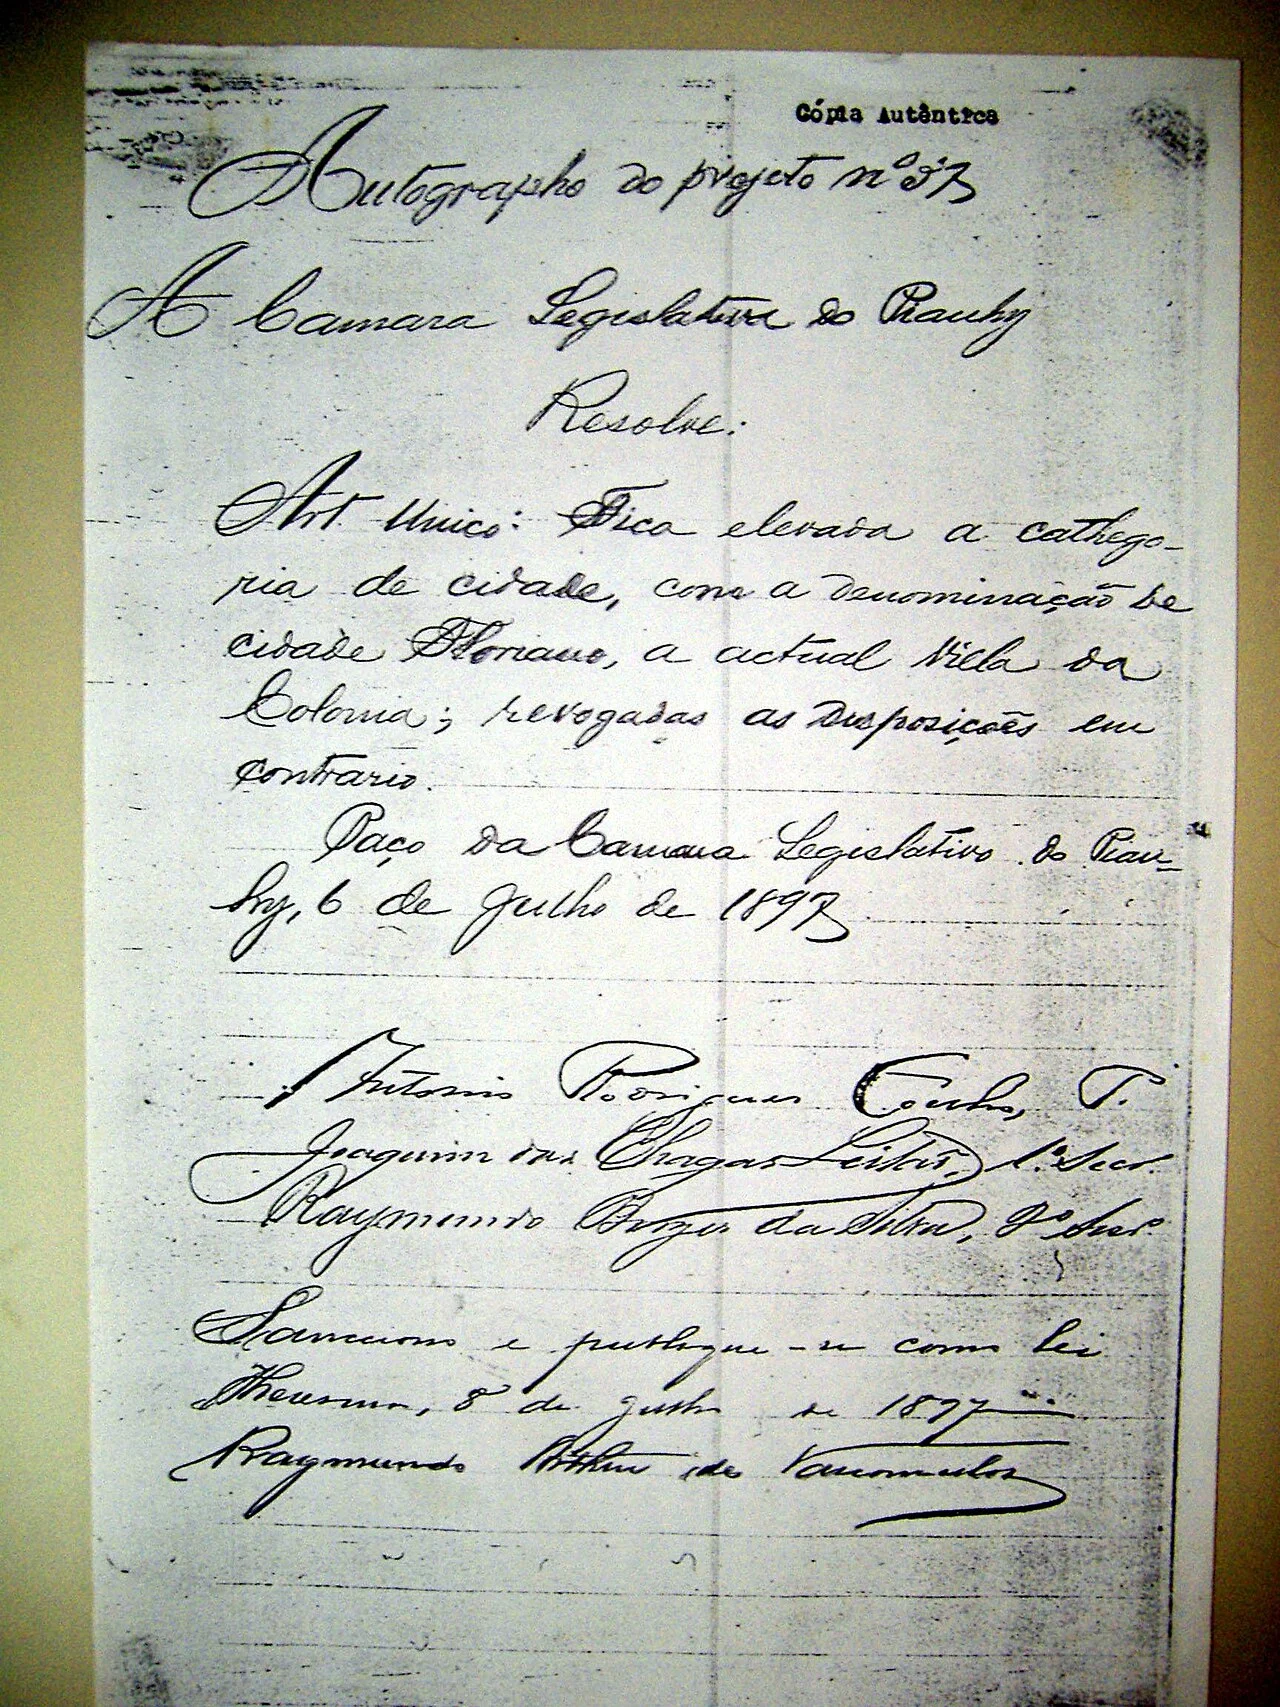 Cópia Autêntica
Autographo do projeto nº 37
A Camara Legislativa do Piauhy
Resolve:
Art. Unico: Fica elevada a cathego-
ria de cidade, com a denominação de
cidade Floriano, a actual Villa da
Colonia; revogadas as disposições em
contrario.
Paço da Camara Legislativa do Piau-
hy, 6 de Julho de 1897
Antonio Rodrigues Coelho, P.
Joaquim das Chagas Leitão, 1º Secr.
Raymundo Borges da Silva, 2º Secrº
Sancciono e publique-se como lei
Therezina, 8 de Julho de 1897
Raymundo Arthur de Vasconcelos